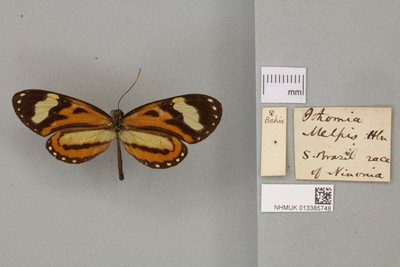 mm
♀
Bahia
Ithomia
Melpis Hbn
S. Brazil race
of Ninonia
NHMUK 013385748